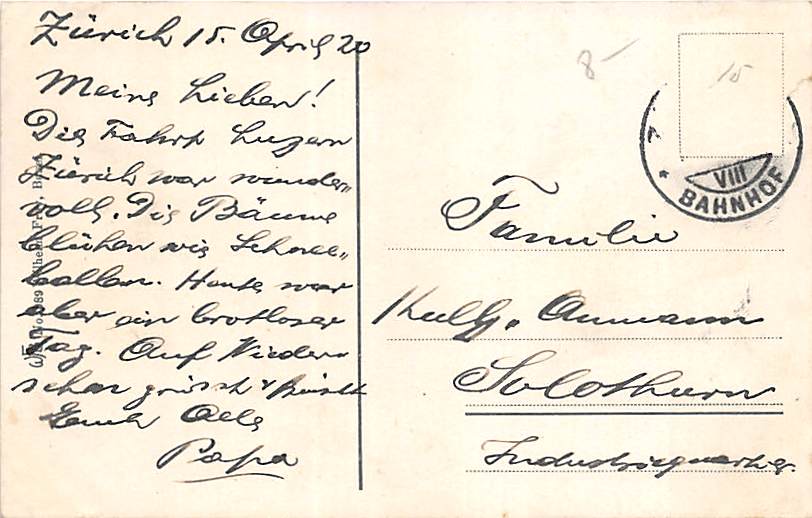 Zürich 15. April 20
Meine Lieben!
Die Fahrt Luzern
Zürich war wunder„
voll. Die Bäume
blühen wie Schnee„
ballen. Heute war
aber ein brotloser
Tag. Auf Wieder„
sehen grüsst & küsst
Euch Alle
Papa
8-
15
VIII
* BAHNHOF
Familie
Ammann
Solothurn
Industriequartier.